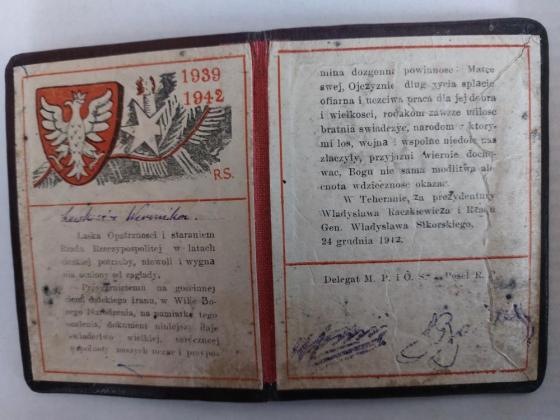 1939
1942
R.S.
Weronika.
Łaska Opatrzności i staraniem
Rządu Rzeczypospolitej w latach
ciężkiej potrzeby, niewoli i wygna
nia ocalony od zagłady,
Przyjmującemu na gościnnej
ziemi dalekiego Iranu, w Wilię Bo-
żego Narodzenia, na pamiątkę tego
ocalenia, dokument niniejszy daję
świadectwo wielkiej, serdecznej
wspólnoty naszych uczuć i przypo-
mina dozgonną powinność: Matce
swej, Ojczyźnie dług życia spłacić
ofiarną i uczciwą pracą dla jej dobra
i wielkości, rodakom zawsze miłość
bratnią świadczyć, narodom z który-
mi los, wojna i wspólne niedole nas
złączyły, przyjaźni wiernie docho-
wać, Bogu nie samą modlitwą ale
cnotą wdzięczność okazać.
W Teheranie, za prezydentury
Władysława Raczkiewicza i Rządu
Gen. Władysława Sikorskiego,
24 grudnia 1942.
Delegat M. P. i O. S. Poseł R. P.